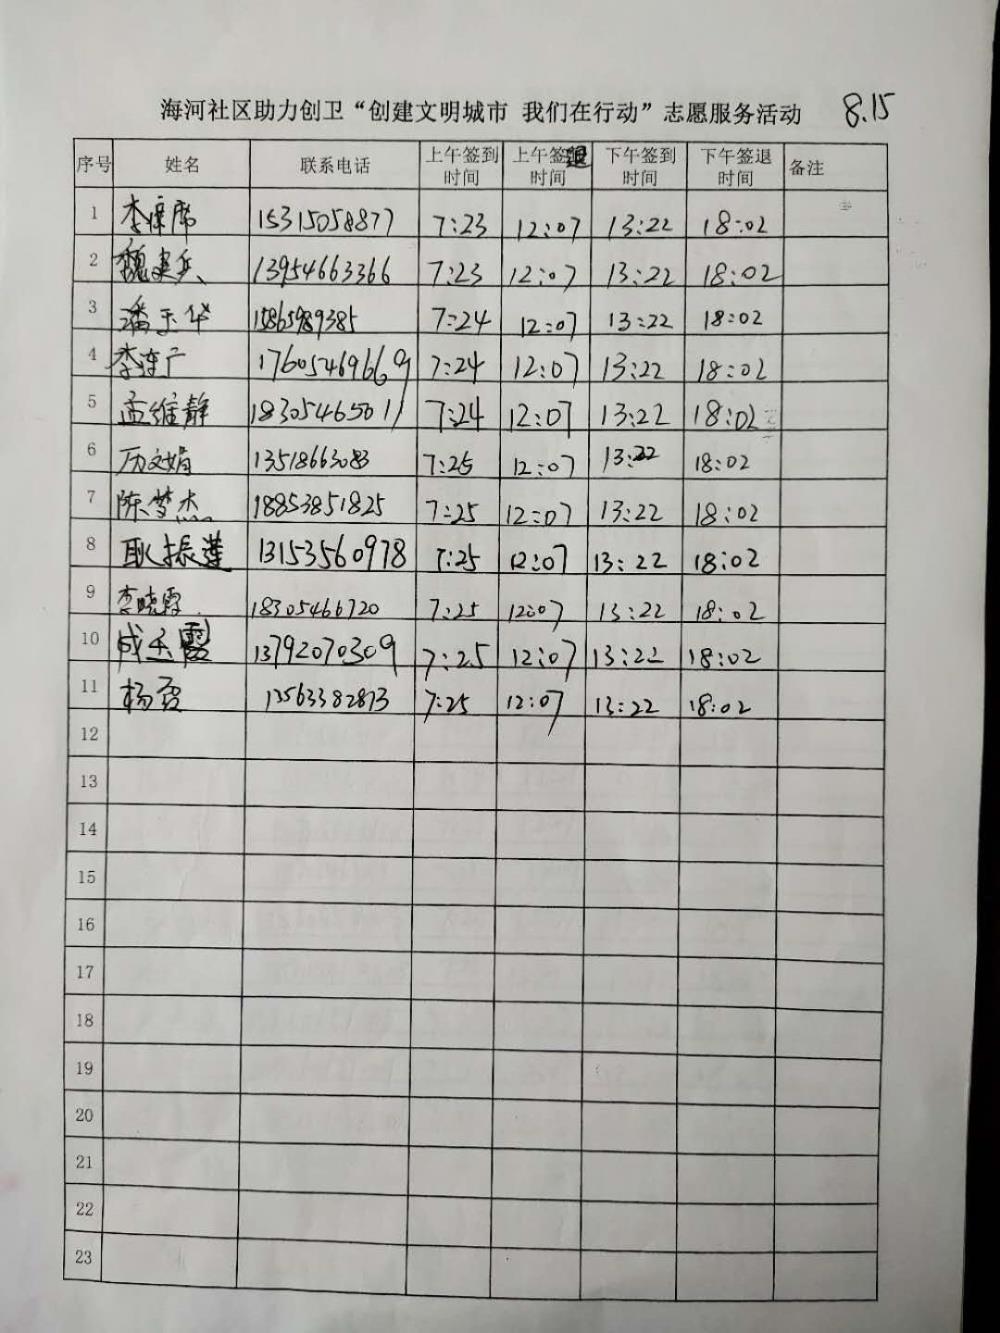 海河社区助力创卫“创建文明城市 我们在行动”志愿服务活动 8.15
序号 姓名 联系电话 上午签到时间 上午签退时间 下午签到时间 下午签退时间 备注
1 李 席 15315058877 7:23 12:07 13:22 18:02
2 魏建兵 13954663366 7:23 12:07 13:22 18:02
3 潘玉华 15865989385 7:24 12:07 13:22 18:02
4 李连广 17605469669 7:24 12:07 13:22 18:02
5 孟维静 18305465011 7:24 12:07 13:22 18:02
6 历文娟 13518663083 7:25 12:07 13:22 18:02
7 陈梦杰 18853851825 7:25 12:07 13:22 18:02
8 耿振莲 13153560978 7:25 12:07 13:22 18:02
9 李晓霞 18305466720 7:25 12:07 13:22 18:02
10 成玉霞 13792070309 7:25 12:07 13:22 18:02
11 杨霞 13563382813 7:25 12:07 13:22 18:02
12
13
14
15
16
17
18
19
20
21
22
23